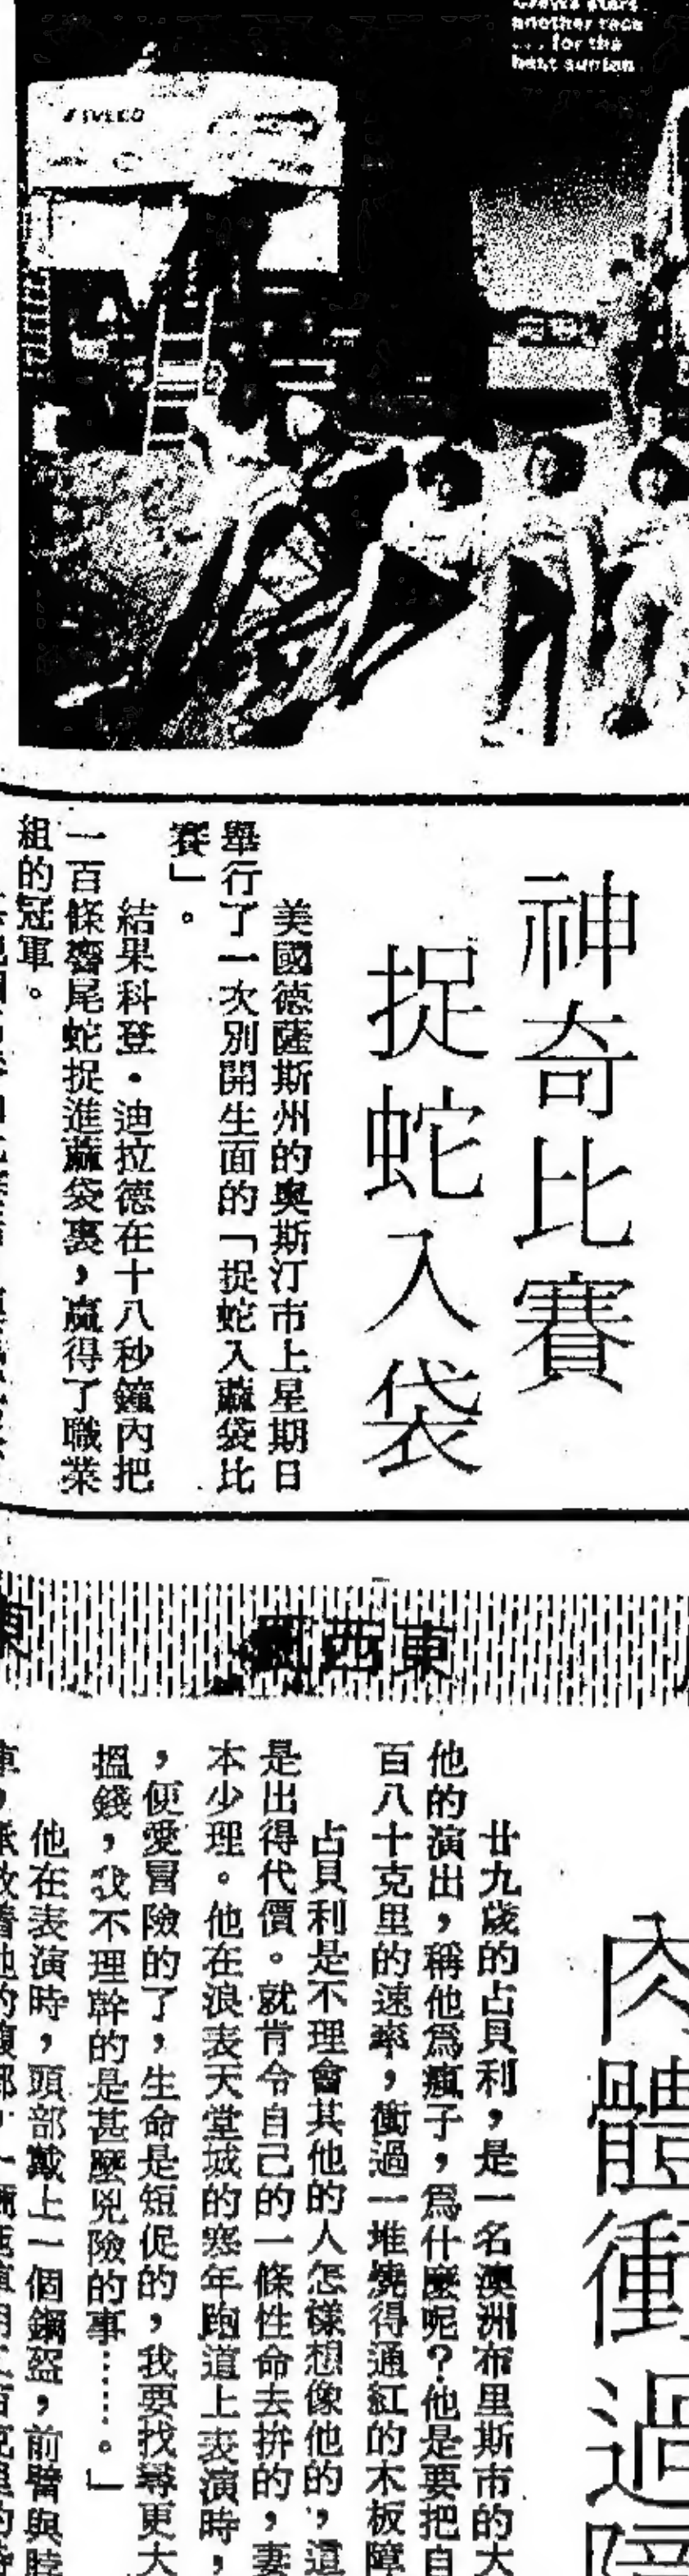 another race
... for the
best suntan
IVECO
神奇比賽
捉蛇入袋
美國德薩斯州的奧斯汀市上星期日
舉行了一次別開生面的「捉蛇入蔴袋比
賽」。
結果科登·迪拉德在十八秒鐘內把
一百條響尾蛇捉進蔴袋裏，贏得了職業
組的冠軍。
東西
肉體衝過
廿九歲的占貝利，是一名澳洲布里斯市的大
他的演出，稱他為瘋子，為什麼呢？他是要把自
百八十克里的速率，衝過一堆燒得通紅的木板障
占貝利是不理會其他的人怎樣想像他的，這
是出得代價。就肯令自己的一條性命去拚的，妻
本少理。他在浪表天堂城的寒年跑道上表演時，
，便愛冒險的了，生命是短促的，我要找尋更大
搵錢，我不理幹的是甚麼兇險的事……。」
他在表演時，頭部戴上一個鋼盔，前臂與